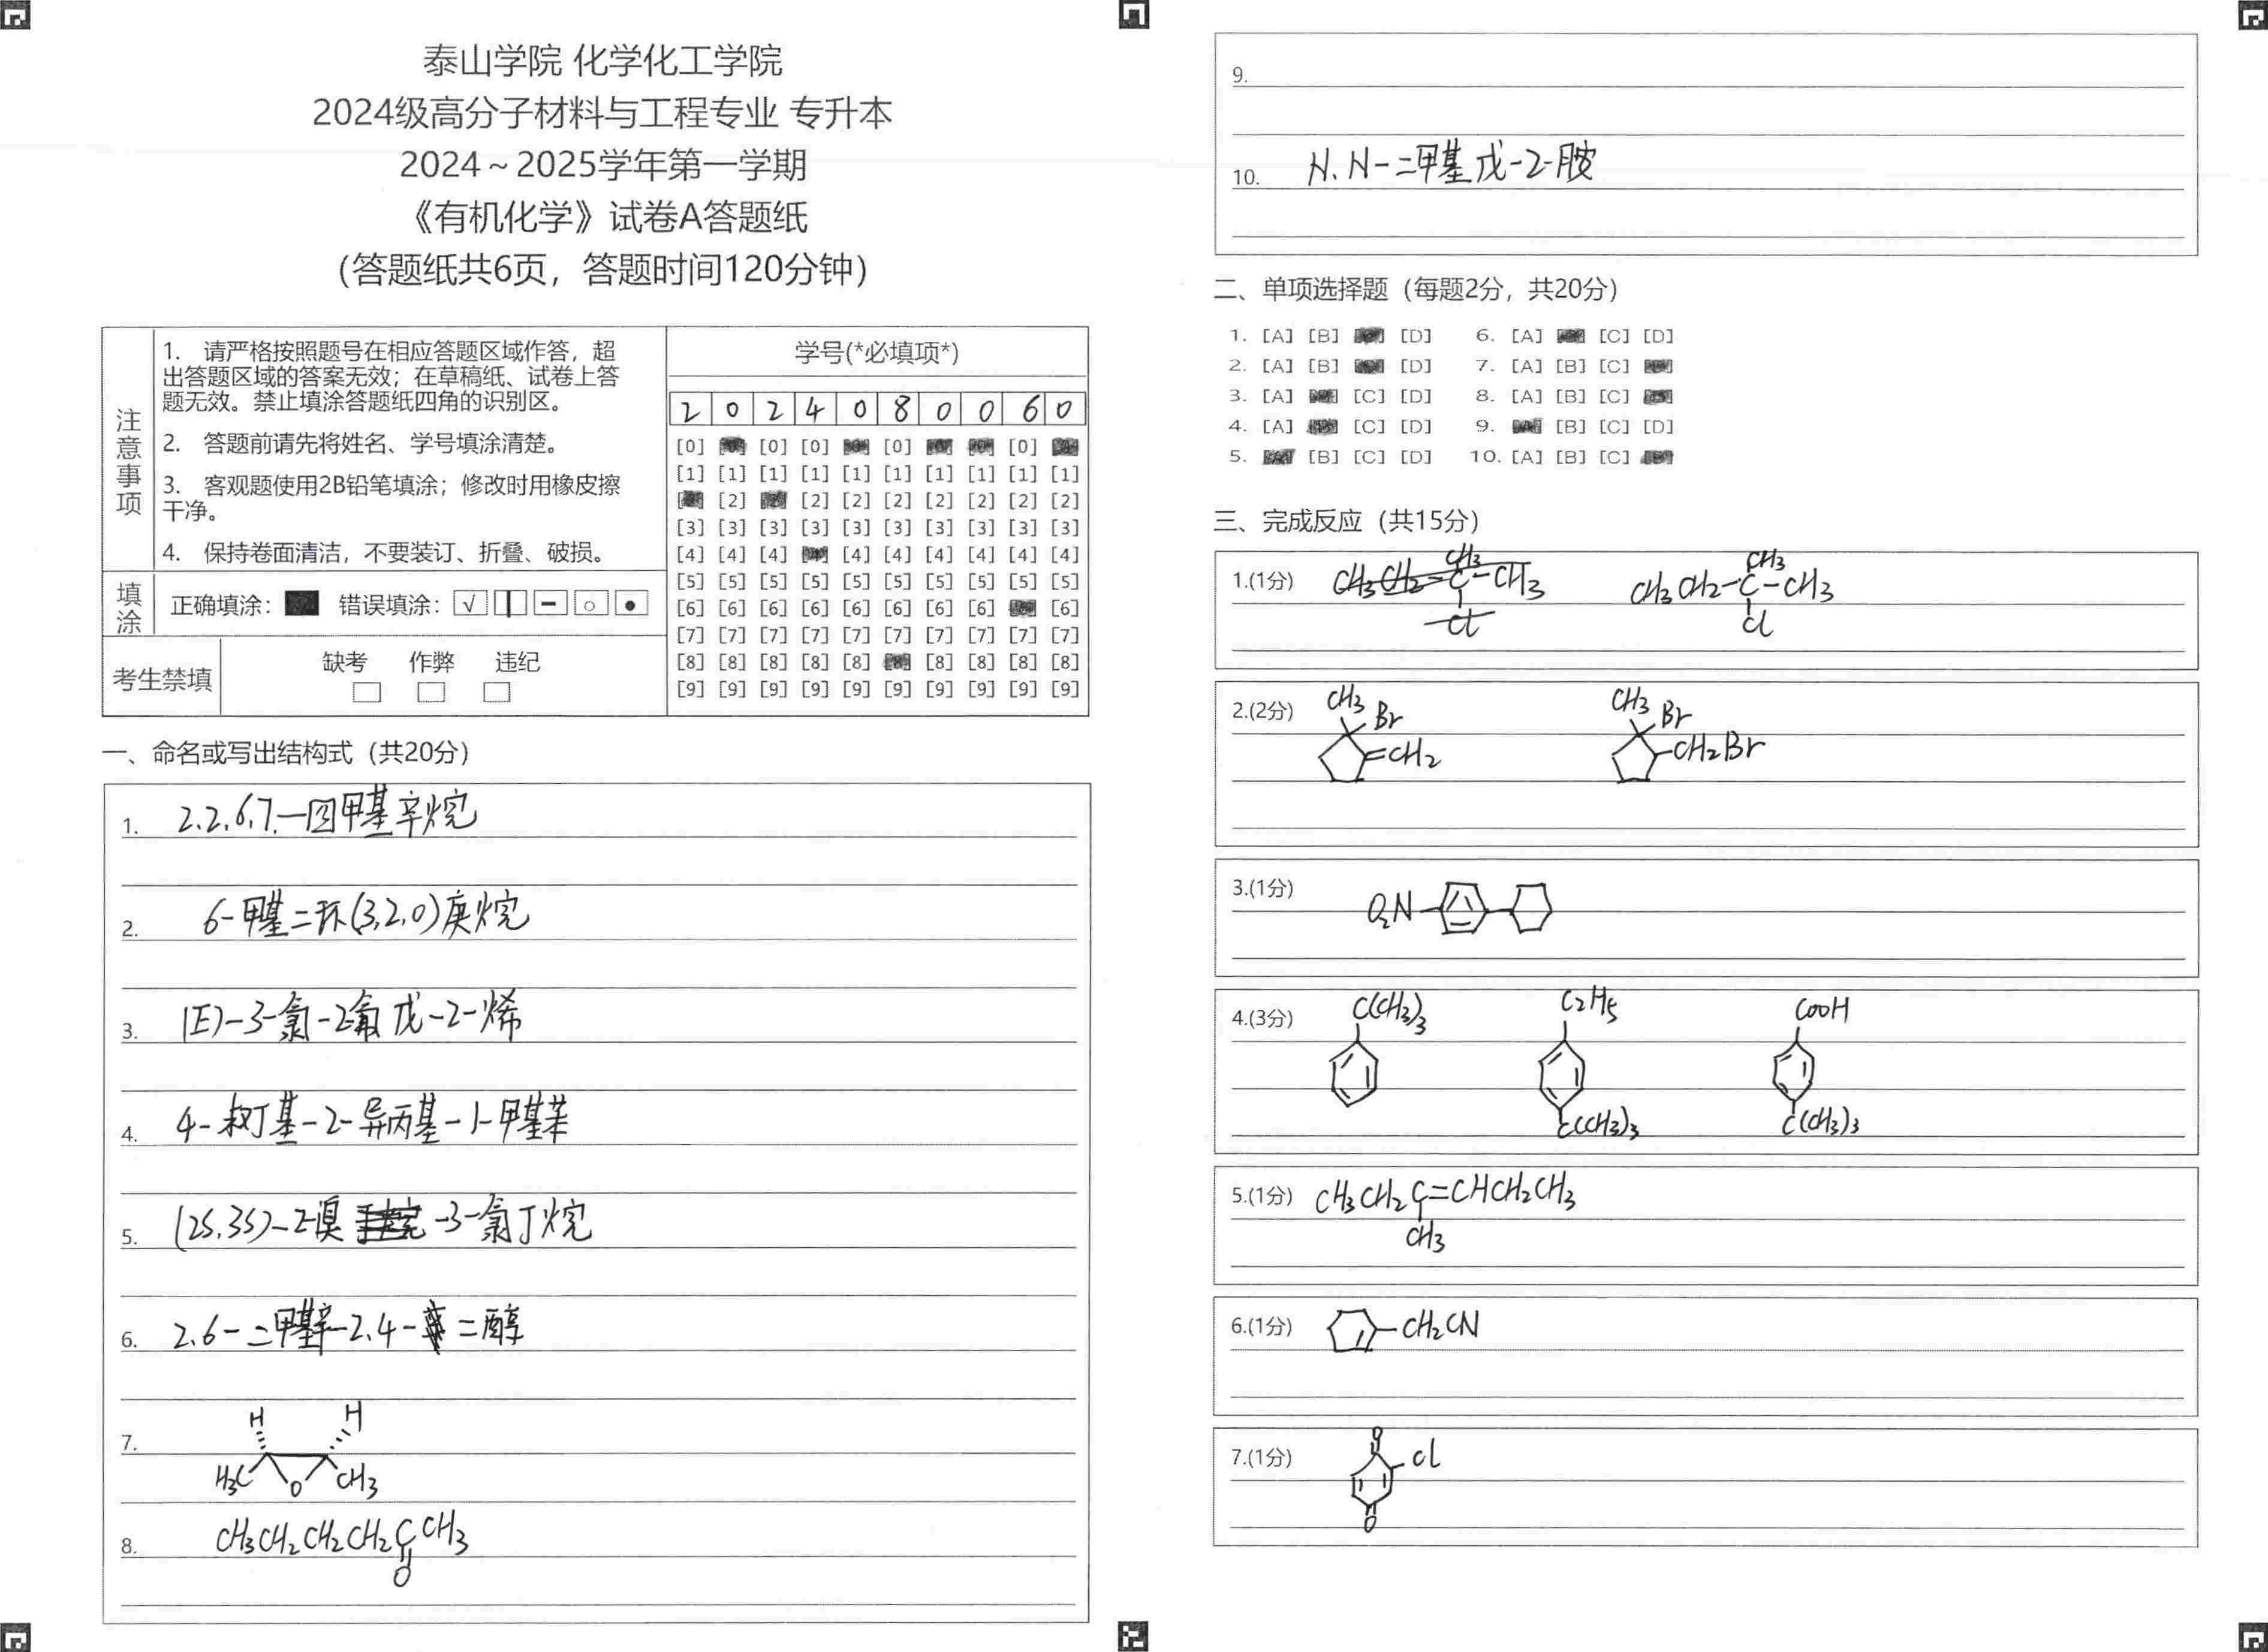 泰山学院 化学化工学院
2024级高分子材料与工程专业 专升本
2024～2025学年第一学期
《有机化学》试卷A答题纸
（答题纸共6页，答题时间120分钟）
注意事项
1. 请严格按照题号在相应答题区域作答，超
出答题区域的答案无效；在草稿纸、试卷上答
题无效。禁止填涂答题纸四角的识别区。
2. 答题前请先将姓名、学号填涂清楚。
3. 客观题使用2B铅笔填涂；修改时用橡皮擦
干净。
4. 保持卷面清洁，不要装订、折叠、破损。
填涂 正确填涂： 错误填涂：
考生禁填 缺考 作弊 违纪
学号(*必填项*)
2 0 2 4 0 8 0 0 6 0
[0] [0] [0] [0] [0]
[1] [1] [1] [1] [1] [1] [1] [1] [1] [1]
[2] [2] [2] [2] [2] [2] [2] [2]
[3] [3] [3] [3] [3] [3] [3] [3] [3] [3]
[4] [4] [4] [4] [4] [4] [4] [4] [4]
[5] [5] [5] [5] [5] [5] [5] [5] [5] [5]
[6] [6] [6] [6] [6] [6] [6] [6] [6]
[7] [7] [7] [7] [7] [7] [7] [7] [7] [7]
[8] [8] [8] [8] [8] [8] [8] [8] [8]
[9] [9] [9] [9] [9] [9] [9] [9] [9] [9]
一、命名或写出结构式（共20分）
1. 2.2.6.7.一四甲基辛烷
2. 6-甲基二环(3,2,0)庚烷
3. (E)-3-氯-2-氟戊-2-烯
4. 4-叔丁基-2-异丙基-1-甲基苯
5. (2S,3S)-2-溴-3-氯丁烷
6. 2.6-二甲基辛-2.4-二醇
7. H H
H3C O CH3
8. CH3CH2CH2CH2CCH3
O
9.
10. N.N-二甲基戊-2-胺
二、单项选择题（每题2分，共20分）
1. [A] [B] [D] 6. [A] [C] [D]
2. [A] [B] [D] 7. [A] [B] [C]
3. [A] [C] [D] 8. [A] [B] [C]
4. [A] [C] [D] 9. [B] [C] [D]
5. [B] [C] [D] 10. [A] [B] [C]
三、完成反应（共15分）
CH3 CH3
1.(1分) CH3CH2-C-CH3 CH3CH2-C-CH3
Cl Cl
2.(2分) CH3 Br CH3 Br
=CH2 -CH2Br
3.(1分) O2N
4.(3分) C(CH3)3 C2H5 COOH
C(CH3)3 C(CH3)3
5.(1分) CH3CH2C=CHCH2CH3
CH3
6.(1分) -CH2CN
7.(1分) O Cl
O